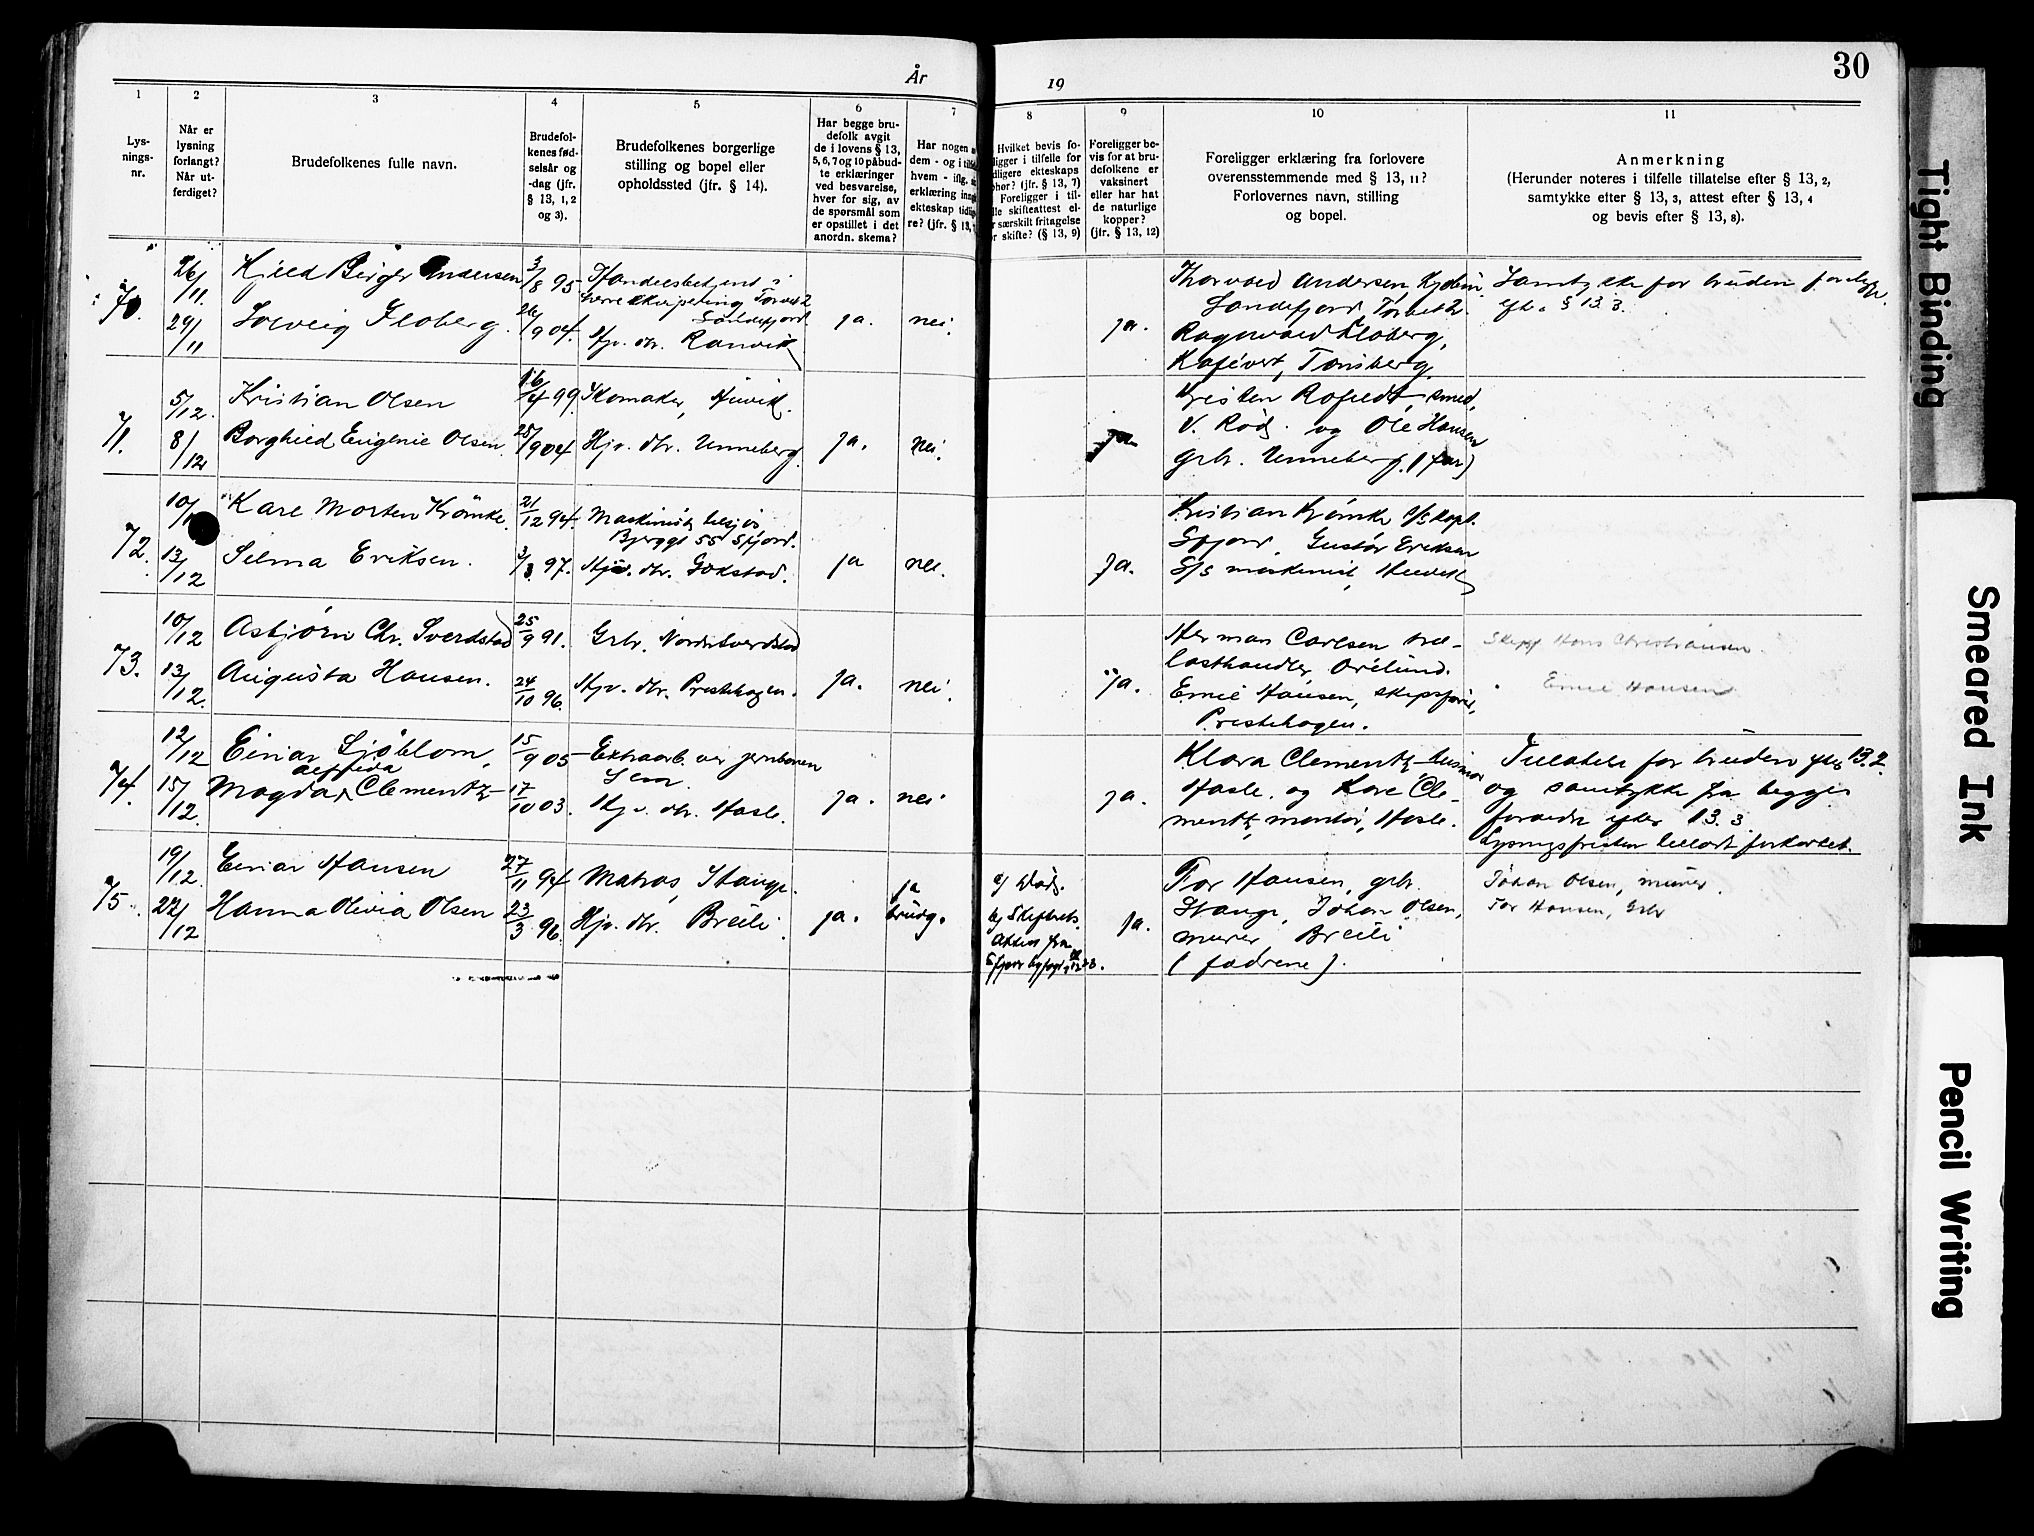 År
19
30
1
2
3
4
5
6
7
8
9
10
11
Lys-
nings-
nr.
Når er
lysning
forlangt?
Når ut-
ferdiget?
Brudefolkenes fulle navn.
Brudefol-
kenes fød-
selsår og
-dag (jfr.
§ 13, 1, 2
og 3).
Brudefolkenes borgerlige
stilling og bopel eller
opholdssted (jfr. § 14).
Har begge bru-
defolk avgit
de i lovens § 13,
5, 6, 7 og 10 påbud-
te erklæringer
ved besvarelse,
hver for sig, av
de spørsmål som
er opstillet i det
anordn. skema?
Har nogen a
dem - og i
hvem - iflg.
erklæring
ekteskap
re? (jfr. § 13,
Hvilket bevis fo-
ligger i tilfelle for
dligere ekteskaps
phør? (jfr. § 13, 7)
Foreligger i til-
lle skifteattest el-
r særskilt fritagelse
r skifte? (§ 13, 9)
Foreligger be-
vis for at bru-
defolkene er
vaksinert
eller har hat
de naturlige
kopper?
(jfr. § 13, 12)
Foreligger erklæring fra forlovere
overensstemmende med § 13, 11?
Forlovernes navn, stilling
og bopel.
Anmerkning
(Herunder noteres i tilfelle tillatelse efter § 13, 2,
samtykke efter § 13, 3, attest efter § 13, 4
og bevis efter § 13, 8).
70.
26/11.
29/11
Kjeld Birger Andersen
Solveig Floberg.
3/8 95
26/9 04.
Handelsbetjent i
Herreekvipering Torvet 2
Sandefjord
Hjv. dtr. Ranvik
ja.
nei.
ja.
Thorvald Andersen,
Sandefjord Torvet 2.
Ragnvald Floberg,
Kafévert, Tønsberg,
Samtykke for bruden foreligger
eft. § 13 3.
71.
5/12.
8/12
Kristian Olsen
Borghild Eugenie Olsen
16/4 99.
25/9 04
Skomaker, Huvik.
Hjv. dtr. Unneberg.
ja.
nei.
ja
Kristen Rofeldt, smed,
V. Rød. og Ole Hansen
grbr. Unneberg. (far)
72.
10/1
13/12
Kare Morten Krömke.
Selma Eriksen.
21/12 94.
3/3 97.
Maskinist,
Bjerggt 55 Sfjord.
Hjv. dtr. Gokstad.
ja
nei.
Ja.
Kristian Krömke S/S kapt.
Sfjord. Gustav Eriksen
S/S maskinist, Huvik
73.
10/12
13/12.
Asbjørn Chr. Sverdstad
Augusta Hansen.
25/9 91.
24/10 96.
Grbr. Nordre Sverdstad
Hjv. dtr. Prestehagen.
Ja.
nei.
Ja.
Herman Carlsen træ-
lasthandler Orelund.
Emil Hansen, skipsfører,
Prestehagen.
Skipsf Hans Christiansen.
" Emil Hansen
74.
12/12
15/12.
Einar Sjöblom,
Alfrida
Magda Clementz
15/9 05
17/10 03.
Extraarb. ved jernbanen
Sem.
Hjv. dtr. Hasle.
ja.
nei
ja.
Klara Clementz husmor
Hasle. og Kare Cle-
mentz, montør, Hasle.
Tillatelse for bruden efter 13. 2.
og samtykke fra begges
foreldre efter 13. 3
Lysningsfristen tillatt forkortet.
75.
19/12.
22/12
Einar Hansen
Hanna Olivia Olsen
27/11 94
23/3 96.
Matros, Stange.
Hjv. dtr. Breili.
ja.
ja
brudg.
a) Død.
b) Skifteats.
Attest fra
Sfjord byfogd 22/12 23.
Ja.
Tor Hansen, grbr.
Stange, Johan Olsen,
murer, Breili
(fædrene).
Johan Olsen, murer.
Tor Hansen, Grbr
Tight Binding
Smeared Ink
Pencil Writing